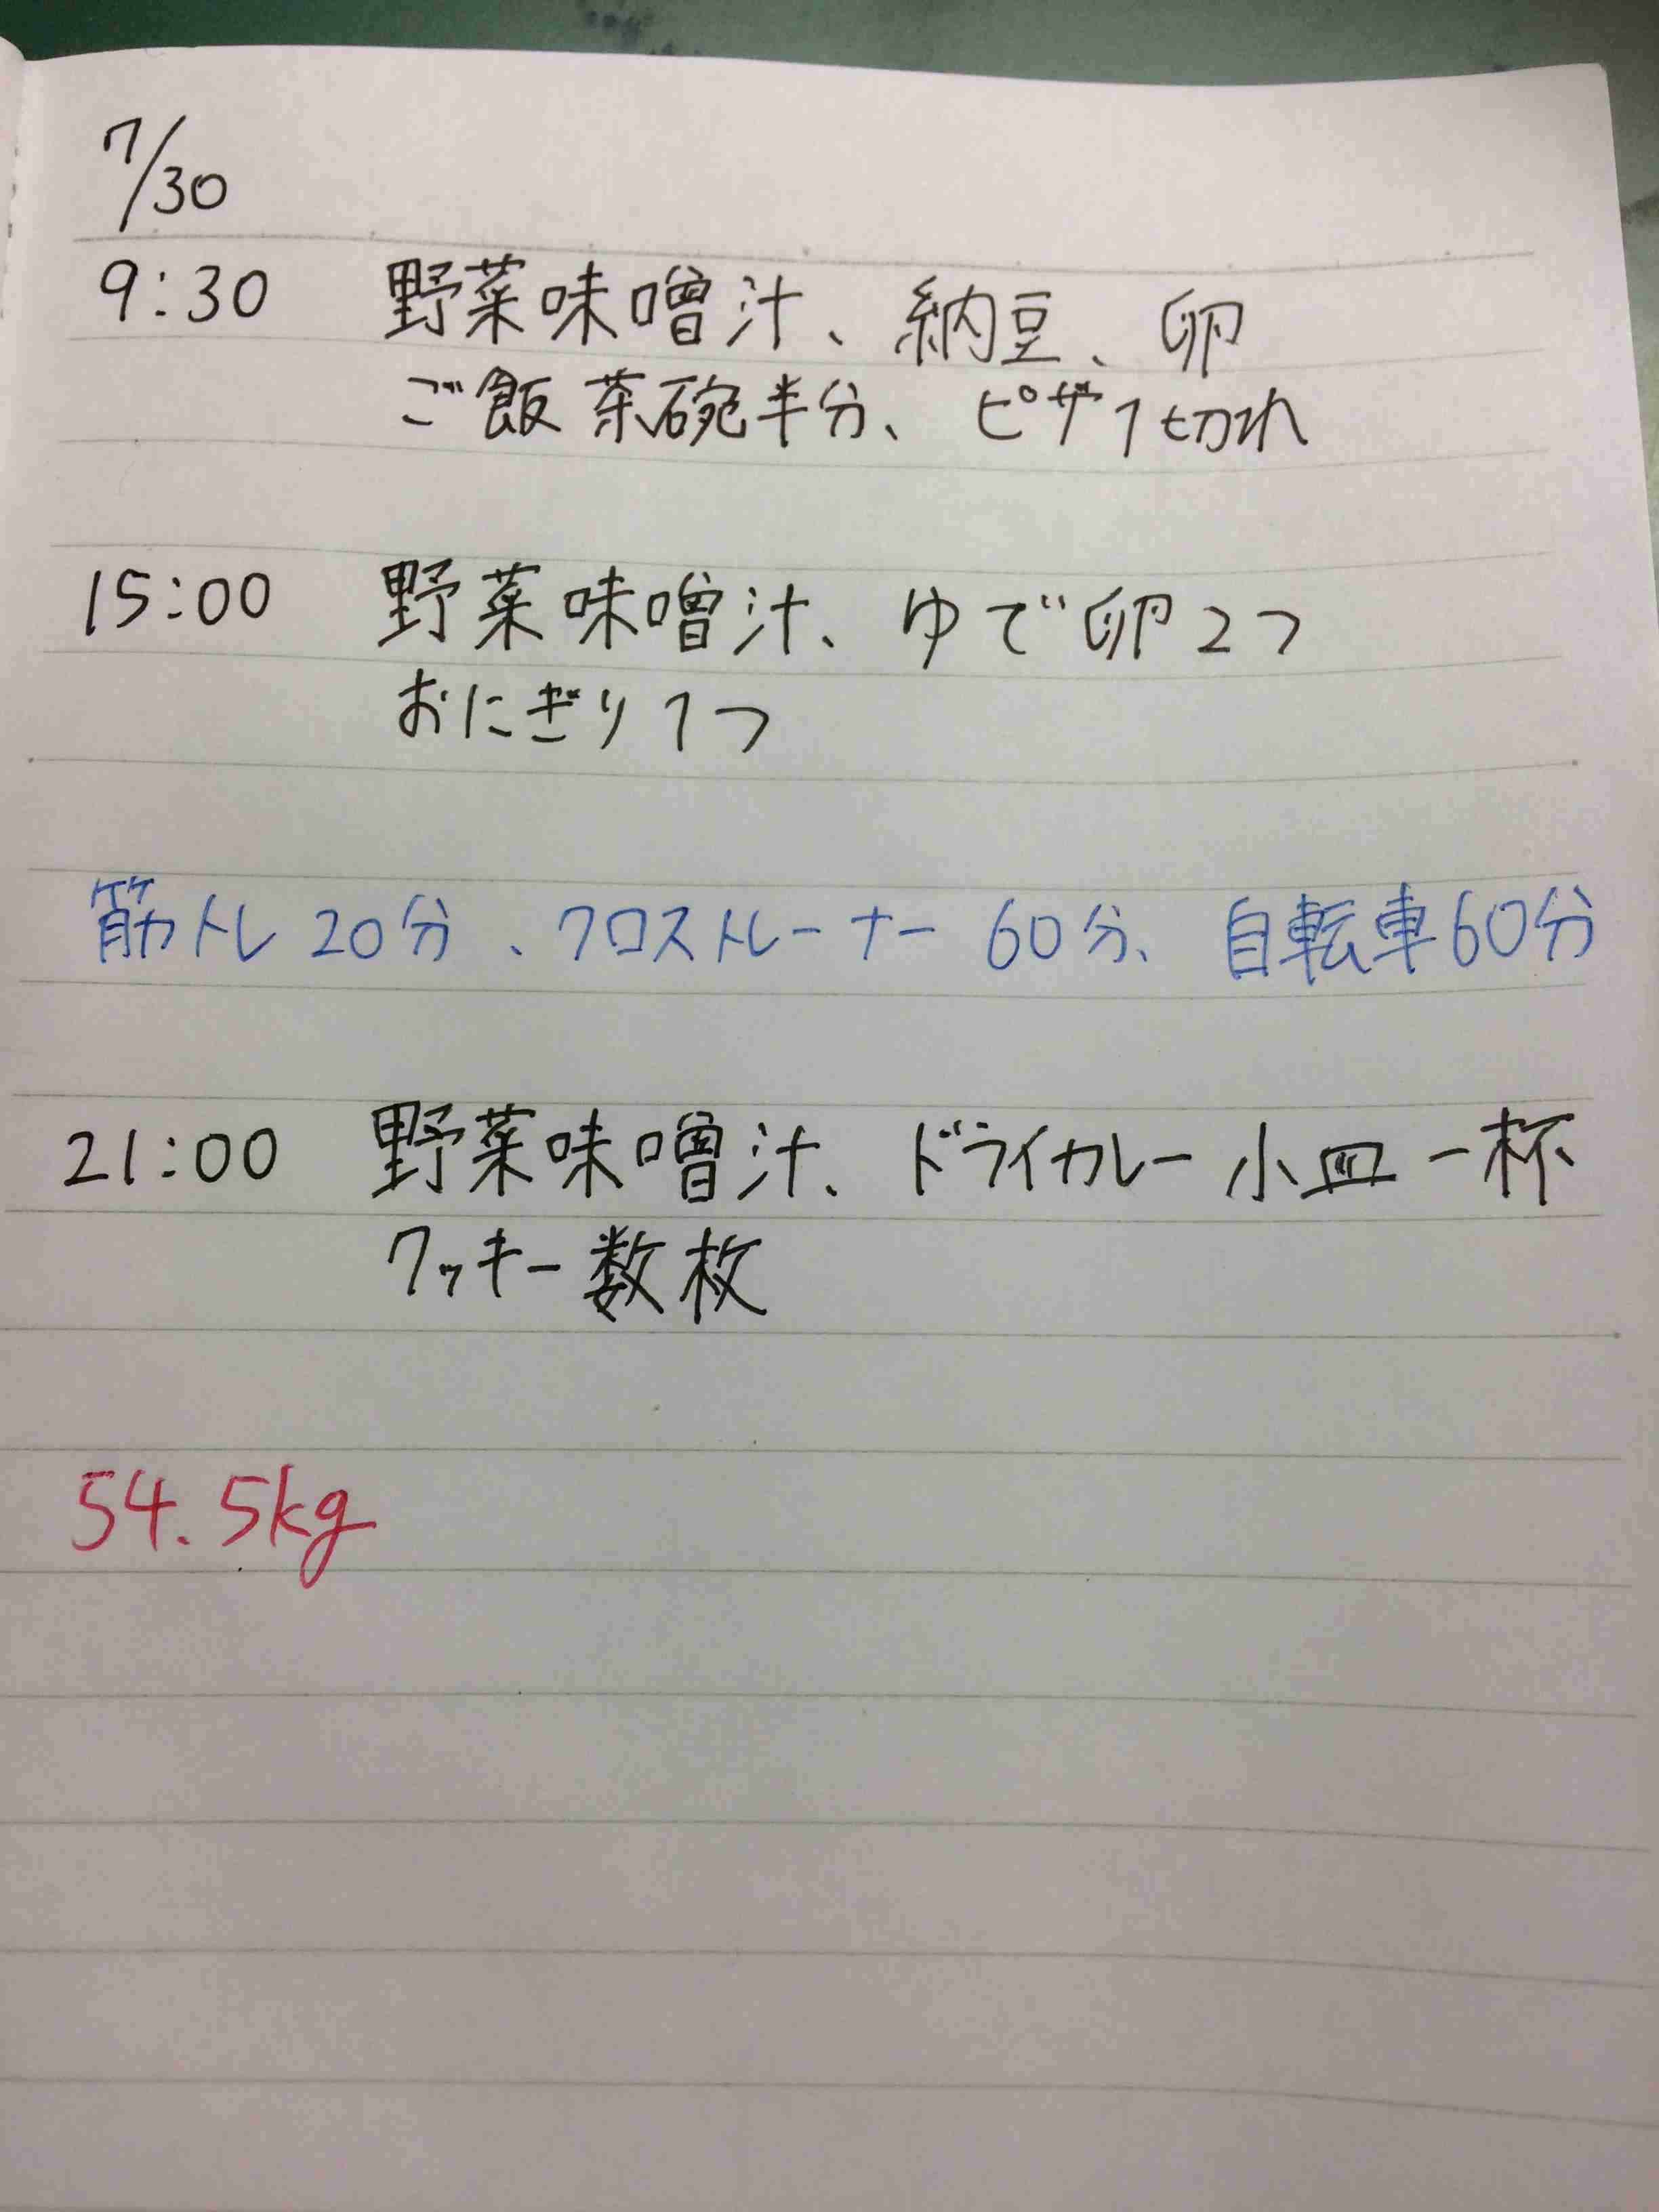 7/30
9:30 野菜味噌汁、納豆、卵
ご飯茶碗半分、ピザ1切れ
15:00 野菜味噌汁、ゆで卵2つ
おにぎり1つ
筋トレ20分、クロストレーナー60分、自転車60分
21:00 野菜味噌汁、ドライカレー小皿一杯
クッキー数枚
54.5kg